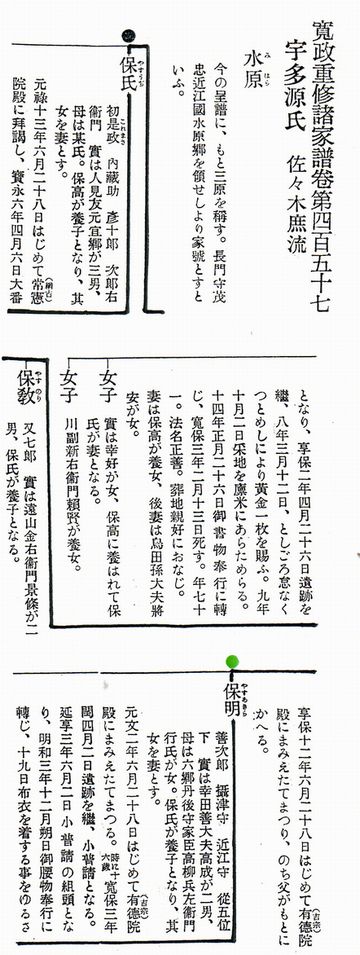 寬政重修諸家譜卷第四百五十七
宇多源氏 佐々木庶流
水原
みはら
今の呈譜に、もと三原を稱す。長門守茂
忠近江國水原鄕を領せしより家號とすと
いふ。
保氏
やすうぢ
初是政 內藏助 彥十郞 次郞右
これまさ
衞門 實は人見友元宜鄕が三男、
母は某氏。保高が養子となり、其
女を妻とす。
元祿十三年六月二十八日はじめて常憲
(綱吉)
院殿に拜謁し、寶永六年四月六日大番
となり、享保二年四月二十六日遺跡を
繼、八年三月十二日、としごろ怠なく
つとめしにより黃金一枚を賜ふ。九年
十月二日采地を廩米にあらためらる。
十四年正月二十六日御書物奉行に轉
じ、寬保三年二月十三日死す。年七十
一。法名正善。葬地親好におなじ。
妻は保高が養女、後妻は島田孫大夫將
安が女。
女子
實は幸好が女、保高に養はれて保
氏が妻となる。
女子
川副新右衞門賴賢が養女。
保敎
やすのり
又七郞 實は遠山金右衞門景條が二
男、保氏が養子となる。
享保十二年六月二十八日はじめて有德院
(吉宗)
殿にまみえたてまつり、のち父がもとに
かへる。
保明
やすあきら
善次郞 攝津守 近江守 從五位
下 實は幸田善大夫高成が二男、
母は六鄕丹後守家臣高柳兵左衞門
行氏が女。保氏が養子となり、其
女を妻とす。
元文二年六月二十八日はじめて有德院
(吉宗)
殿にまみえたてまつる。時に十六歲 寬保三年
閏四月二日遺跡を繼、小普請となる。
延享三年六月二日小普請の組頭とな
り、明和三年十二月朔日御腰物奉行に
轉じ、十九日布衣を着する事をゆるさ